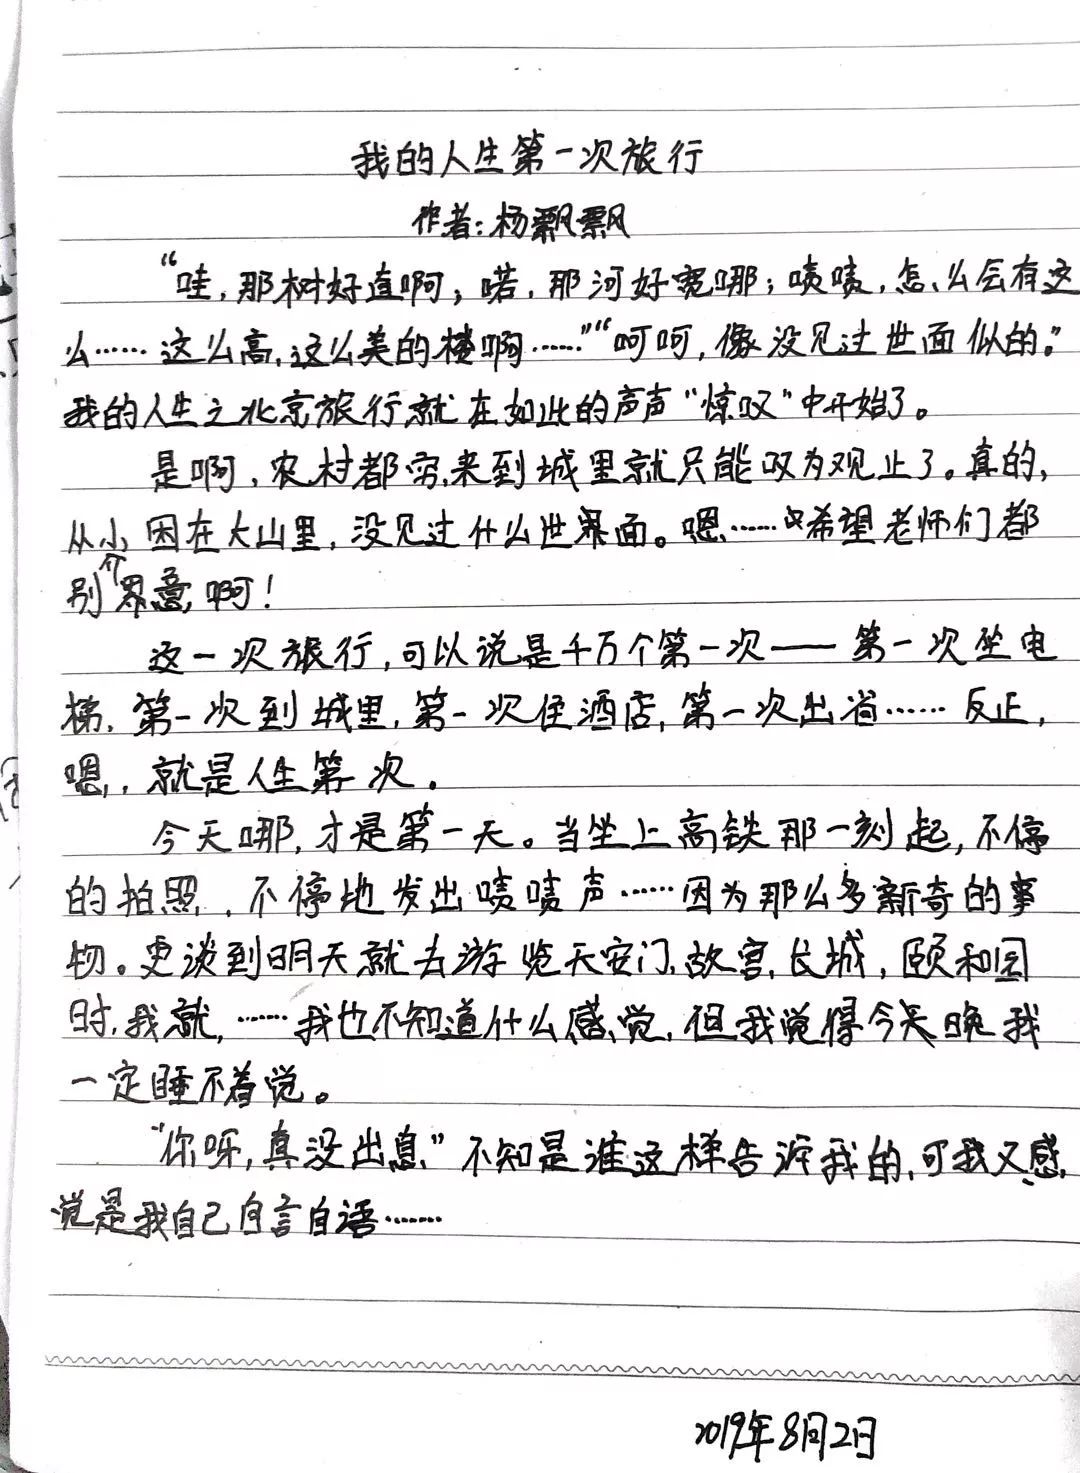 我的人生第一次旅行
作者:杨飘飘
“哇,那树好直啊;喏,那河好宽哪;啧啧,怎么会有这
么……这么高,这么美的楼啊……”“呵呵,像没见过世面似的。”
我的人生之北京旅行就在如此的声声“惊叹”中开始了。
是啊,农村都穷,来到城里就只能叹为观止了。真的,
从小困在大山里,没见过什么世界面。嗯……希望老师们都
别介意啊!
这一次旅行,可以说是千万个第一次——第一次坐电
梯,第一次到城里,第一次住酒店,第一次出省……反正,
嗯,就是人生第一次。
今天哪,才是第一天。当坐上高铁那一刻起,不停
的拍照,不停地发出啧啧声……因为那么多新奇的事
物。更谈到明天就去游览天安门,故宫,长城,颐和园
时,我就,……我也不知道什么感觉,但我觉得今天晚我
一定睡不着觉。
“你呀,真没出息”不知是谁这样告诉我的,可我又感
觉是我自己自言自语……
2019年8月2日